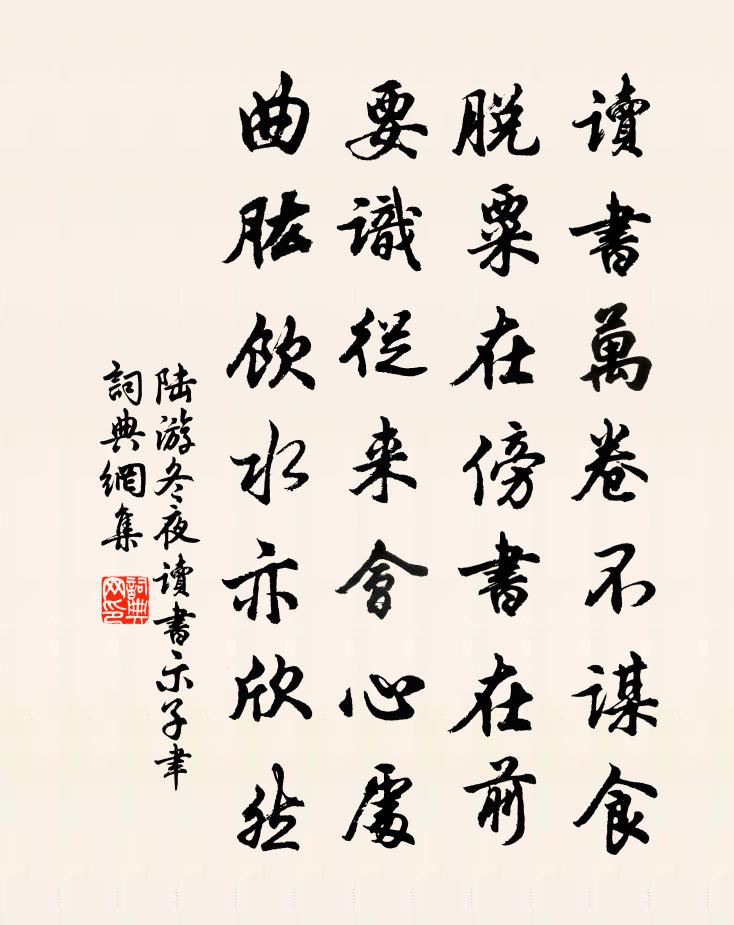 讀書萬卷不謀食
脱粟在傍書在前
要識從来會心處
曲肱飲水亦欣然
陆游冬夜讀書示子聿
詞典網集
詞典
网印